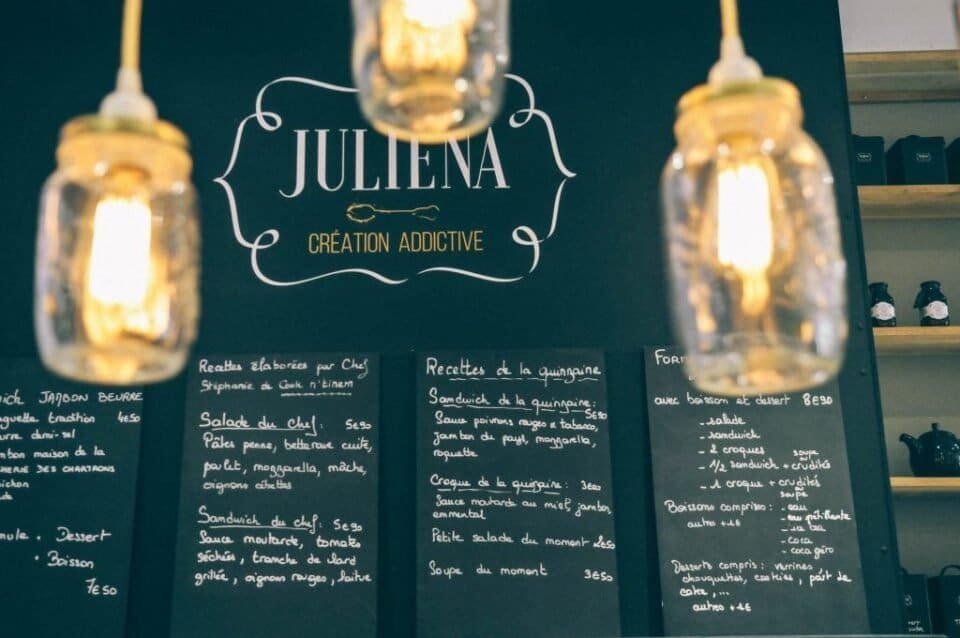 JULIENA
CRÉATION ADDICTIVE
JAMBON BEURRE
tradition 4e50
demi-sel
maison de la
DES CHARTRONS
Dessert
+ Boisson
7e50
Recettes élaborées par Chef
Stéphanie de Cook n'tinem
Salade du chef : 5e90
Pâtes penne, betterave cuite,
poulet, mozzarella, mâche,
oignons cébettes
Sandwich du chef : 5e90
Sauce moutarde, tomates
séchés, tranche de lard
grillée, oignons rouges, laitue
Recettes de la quinzaine
Sandwich de la quinzaine :
5e90
Sauce poivrons rouges & tabasco,
jambon du pays, mozzarella,
roquette
Croque de la quinzaine : 3e80
Sauce moutarde au miel, jambon
emmental
Petite salade du moment 2e50
Soupe du moment 3e50
avec boisson et dessert 8e90
- salade
- sandwich
- 2 croques
soupe
ou
- 1/2 sandwich + crudités
- 1 croque + crudités
ou
soupe
Boissons comprises : - eau
autres +1€
- eau pétillante
- coca
- coca zéro
Desserts compris : verrines,
chouquettes, cookies, part de
cake, ...
autres +1€